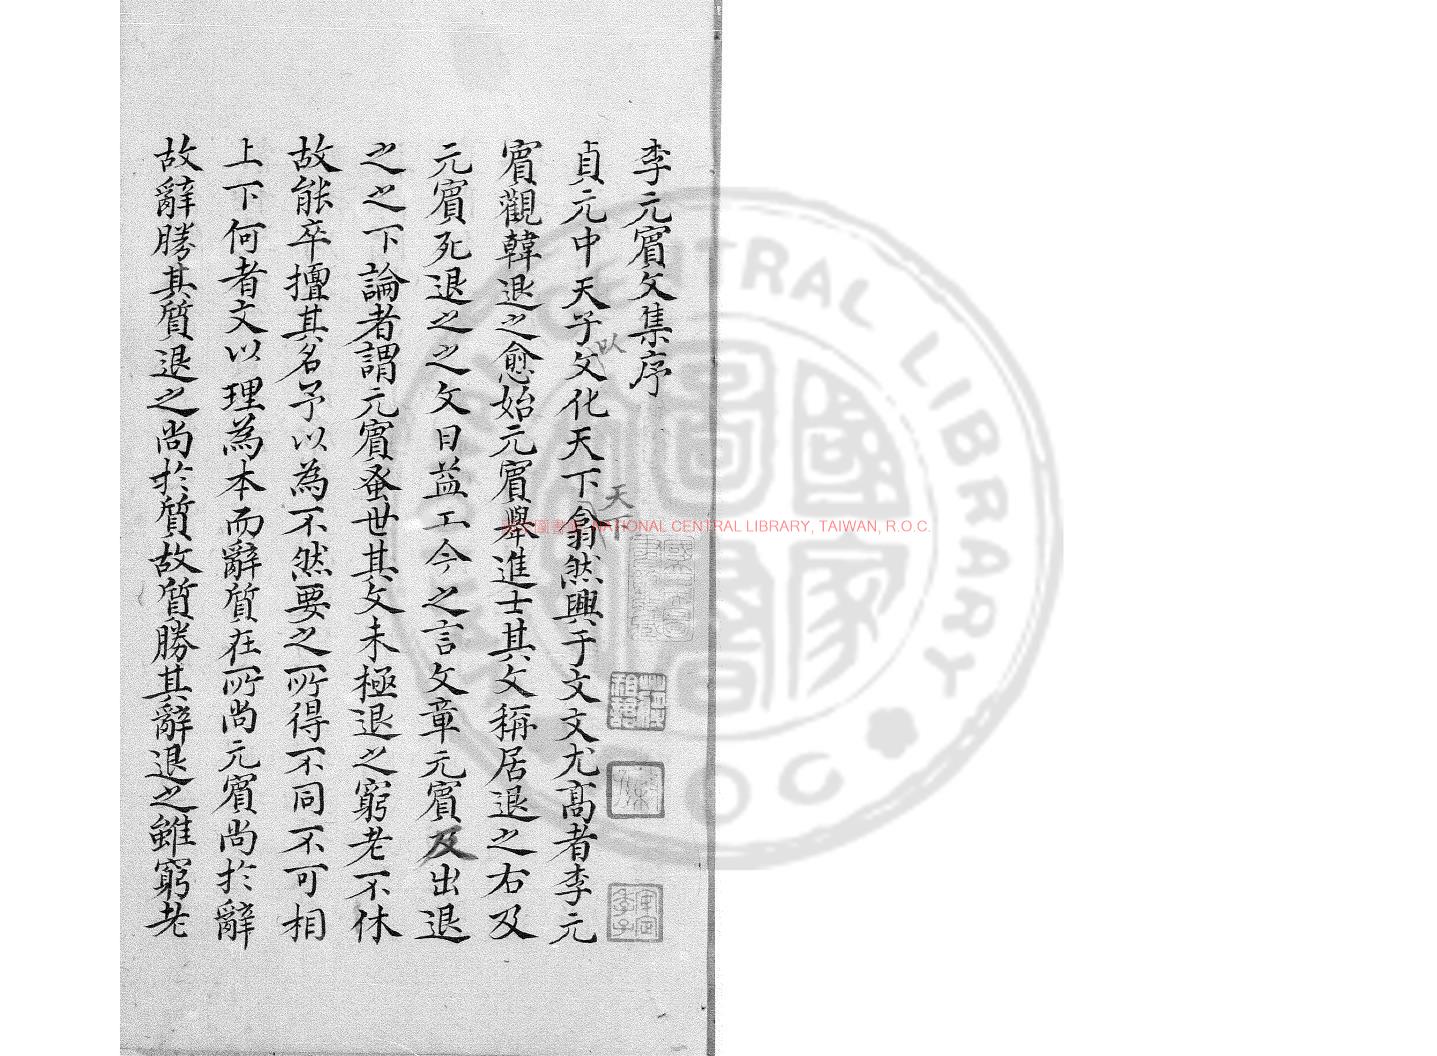 李元賔文集序
貞元中天子以文化天下天下翕然興于文文尤髙者李元
賔觀韓退之愈始元賔舉進士其文稱居退之右及
元賔死退之之文日益工今之言文章元賔及出退
之之下論者謂元賔蚤世其文未極退之窮老不休
故能卒擅其名予以為不然要之所得不同不可相
上下何者文以理為本而辭質在所尚元賔尚於辭
故辭勝其質退之尚於質故質勝其辭退之雖窮老
NATIONAL CENTRAL LIBRARY, TAIWAN, R.O.C.